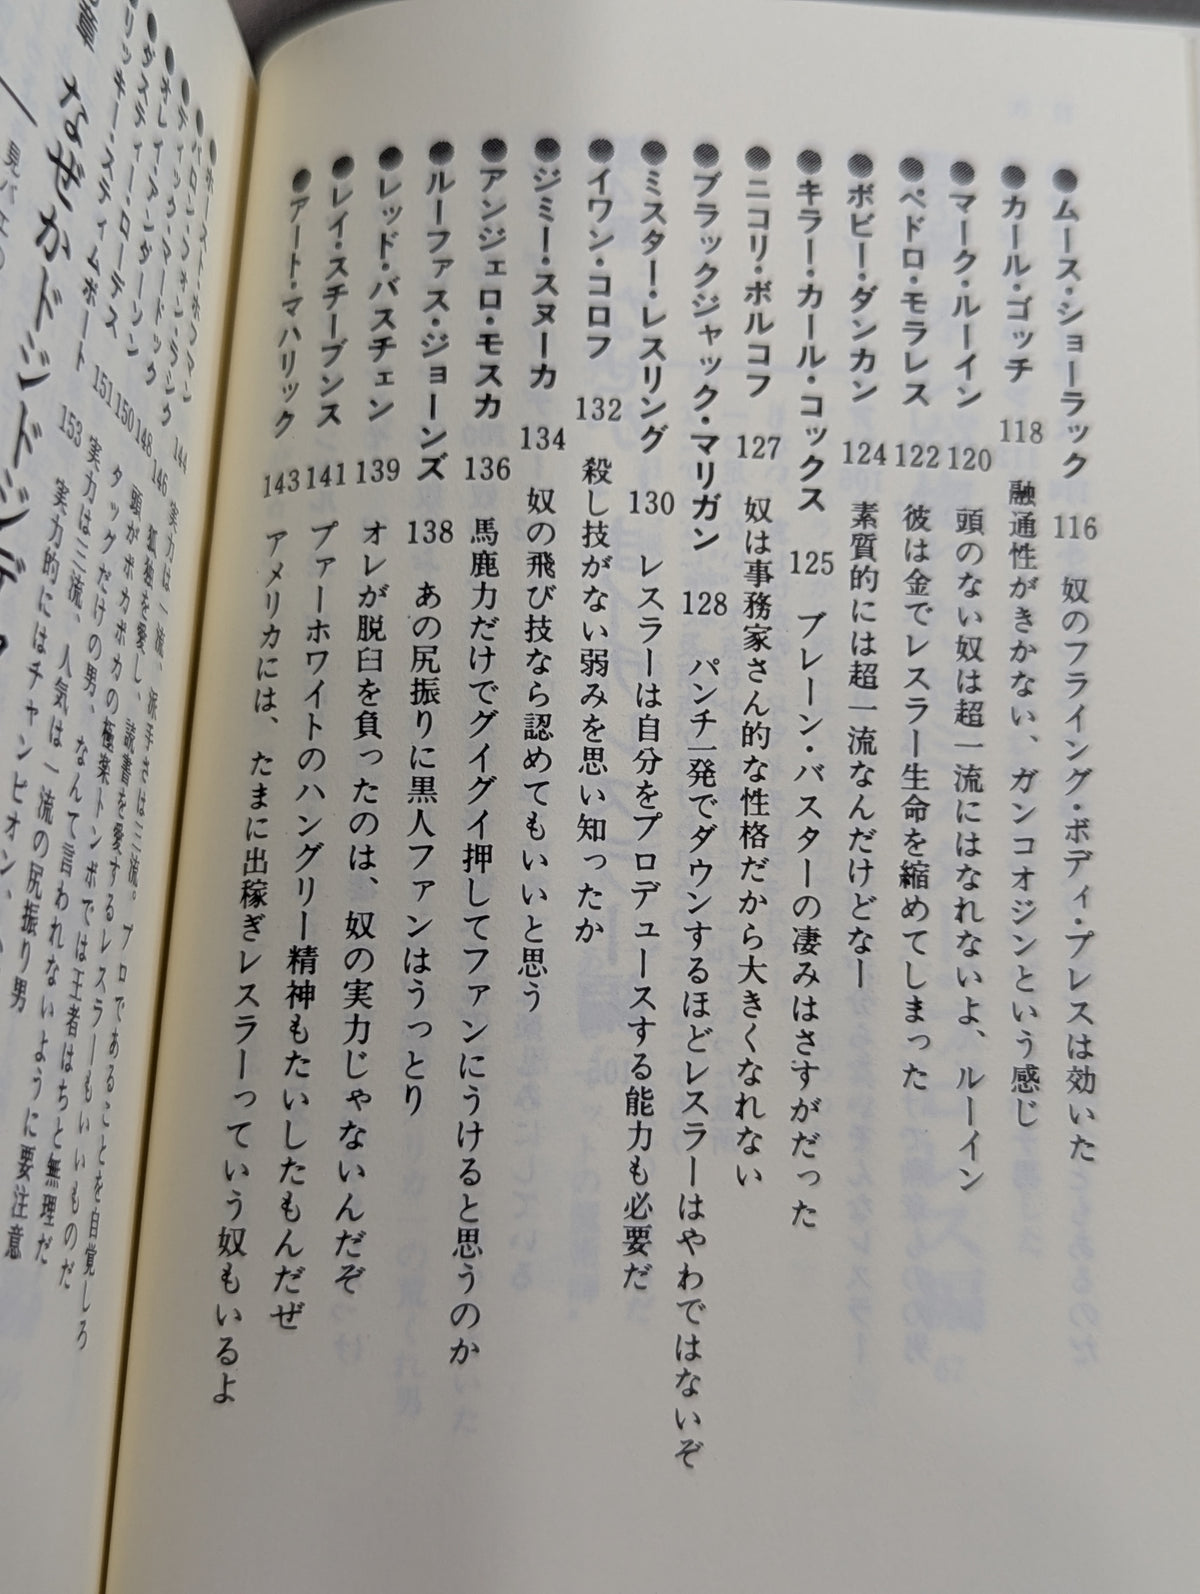 ●ムース・ショーラック 116 奴のフライング・ボディ・プレスは効いた
●カール・ゴッチ 118 融通性がきかない、ガンコオジンという感じ
●マーク・ルーイン 120 頭のない奴は超一流にはなれないよ、ルーイン
●ペドロ・モラレス 122 彼は金でレスラー生命を縮めてしまった
●ボビー・ダンカン 124 素質的には超一流なんだけどなー
●キラー・カール・コックス 125 ブレーン・バスターの凄みはさすがだった
●ニコリ・ボルコフ 127 奴は事務家さん的な性格だから大きくなれない
●ブラックジャック・マリガン 128 パンチ一発でダウンするほどレスラーはやわではないぞ
●ミスター・レスリング 130 レスラーは自分をプロデュースする能力も必要だ
●イワン・コロフ 132 殺し技がない弱みを思い知ったか
●ジミー・スヌーカ 134 奴の飛び技なら認めてもいいと思う
●アンジェロ・モスカ 136 馬鹿力だけでグイグイ押してファンにうけると思うのか
●ルーファス・ジョーンズ 138 あの尻振りに黒人ファンはうっとり
●レッド・バスチェン 139 オレが脱臼を負ったのは、奴の実力じゃないんだぞ
●レイ・スチーブンス 141 プアーホワイトのハングリー精神もたいしたもんだぜ
●アート・マハリック 143 アメリカには、たまに出稼ぎレスラーっていう奴もいるよ
●ホースト・ホフマン 144 実力は一流、派手さは三流。プロであることを自覚しろ
●バロン・フォン・ラシク 146 孤独を愛し、読書を愛するレスラーもいいものだ
●ディック・マードック 148 頭がポカポカの極楽トンボでは王者はちと無理だ
●オレイ・アンダーソン 150 タッグだけの男、なんて言われないように要注意
●ダスティー・ローデス 151 実力は三流、人気は一流の尻振り男
リッキー・スティムボート 153 実力的にはチャンピオン、
章 なぜかドジドジ
見バエの